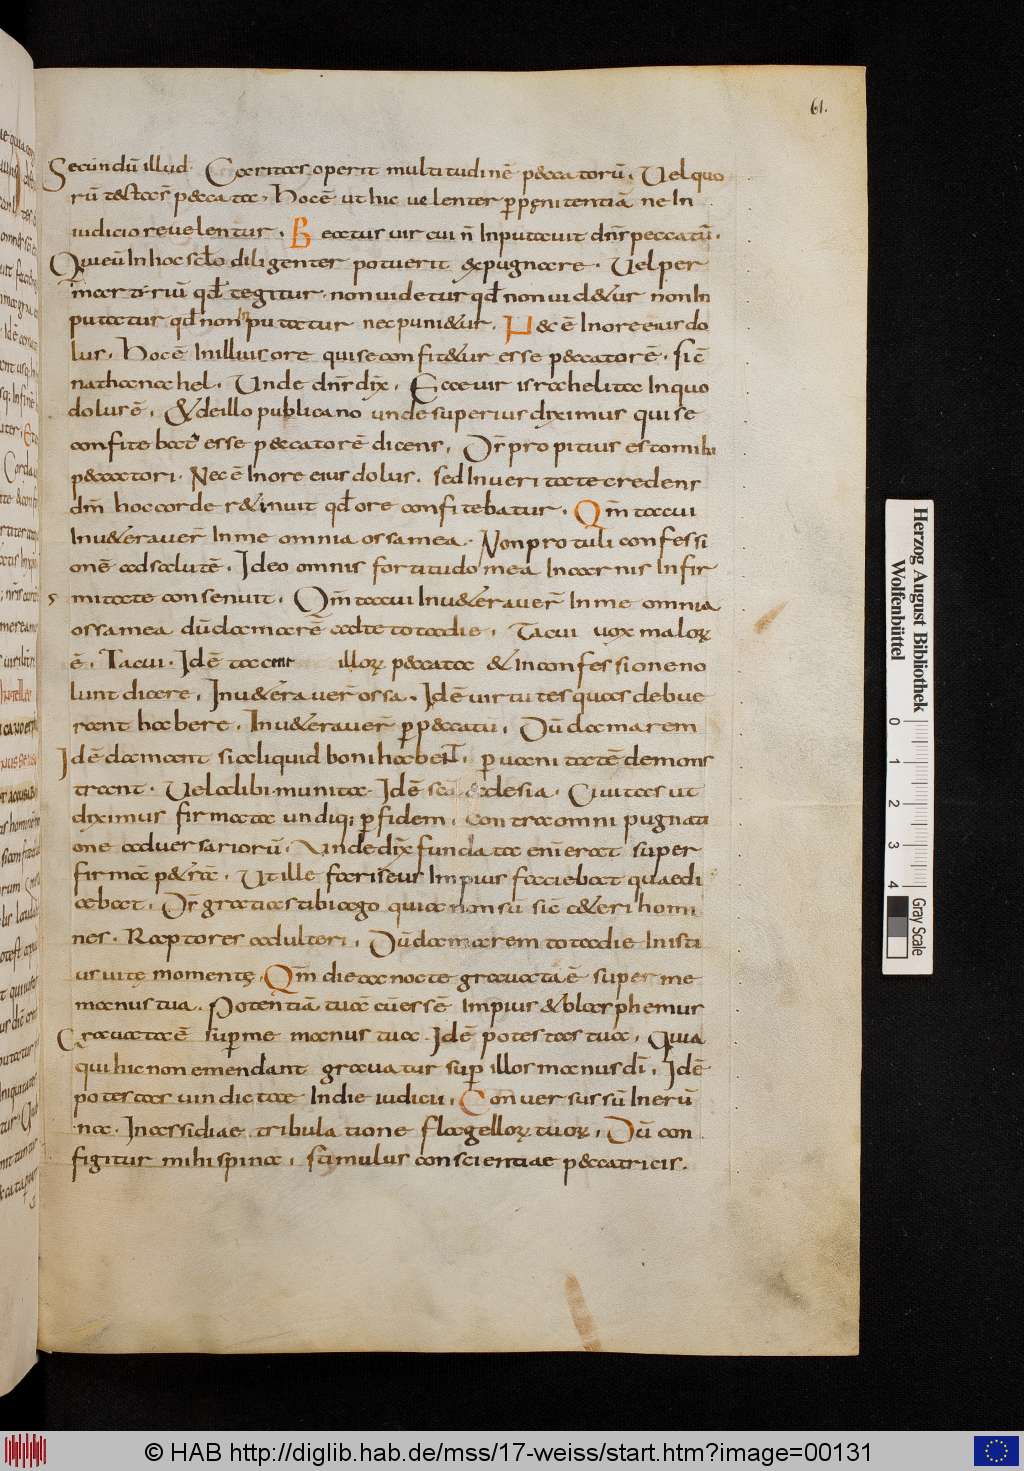 61.
Secundū illud. Caritas operit multitudinē peccatorū, Vel quo
rū tectasͨ peccata, Hoc ē ut hic velenter p penitentiā ne In
iudicio revelentur. Beatus vir cui n̄ Inputavit dn̄s peccatū.
Qui eū In hoc sclo diligenter potuerit expugnare. Vel per
martiriū qd̄ tegitur. non uidetur qd̄ non uidetur non In
putatur qd̄ non Inputatur nec punietur. Nec ē In ore eius do
lus. Hoc ē In illius ore qui se confitetur esse peccatorē. sic̄
nathanahel. Unde dn̄s dix̄. Ecce vir israhelita In quo
dolus ē, & de illo publicano unde superius diximus qui se
confitebat esse peccatorē dicens, Ds̄ propitius esto mihi
peccatori. Nec ē In ore eius dolus. sed In veritate credens
dm̄ hoc corde retinuit qd̄ ore confitebatur. Qm̄ tacui
Inveteraver̄ In me omnia ossa mea. Non protuli confessi
onē ad salutē. Ideo omnis fortitudo mea In carnis Infir
mitate consenuit. Qm̄ tacui Inveteraver̄ In me omnia
ossa mea dū clamarē ad te tota die, Tacui vox malorꝝ
ē, Tacui. Idē tacent illorꝝ peccata & in confessione no
lunt dicere, Inveteraver̄ ossa. Idē virtutes quas debue
rant habere. Inveteraver̄ p peccatū, Dū clamarem
Idē clamant si aliquid boni haberent, p vanitatē demons
trant. Vel alibi munita. Idē sca ecclesia. Civitas ut
diximus firmata undiq; p fidem, contra omni pugnati
one adversariorū. Unde dix̄ fundata enī erat super
firmā petrā. Ut ille fariseus Impius faciebat quae di
cebat, Ds̄ gratias tibi ago quia non sū sic̄ ceteri homi
nes. Raptores adulteri, Dū clamarem tota die In isti
us vitę momentę. Qm̄ die ac nocte gravata ē super me
manus tua. Potentiā tuā cū essē Impius & blasphemus
Gravata ē sup me manus tua. Idē potestas tua, Quia
qui hic non emendant gravatur sup illos manus dī, Idē
potestas vindictae In die iudicii, Conversus sū In erū
na. In assidiae tribulatione flagellorꝝ tuorꝝ, Dū con
figitur mihi spina, stimulus conscientiae peccatricis.
Herzog August Bibliothek
Wolfenbüttel
0 1 2 3 4
Gray Scale
© HAB http://diglib.hab.de/mss/17-weiss/start.htm?image=00131